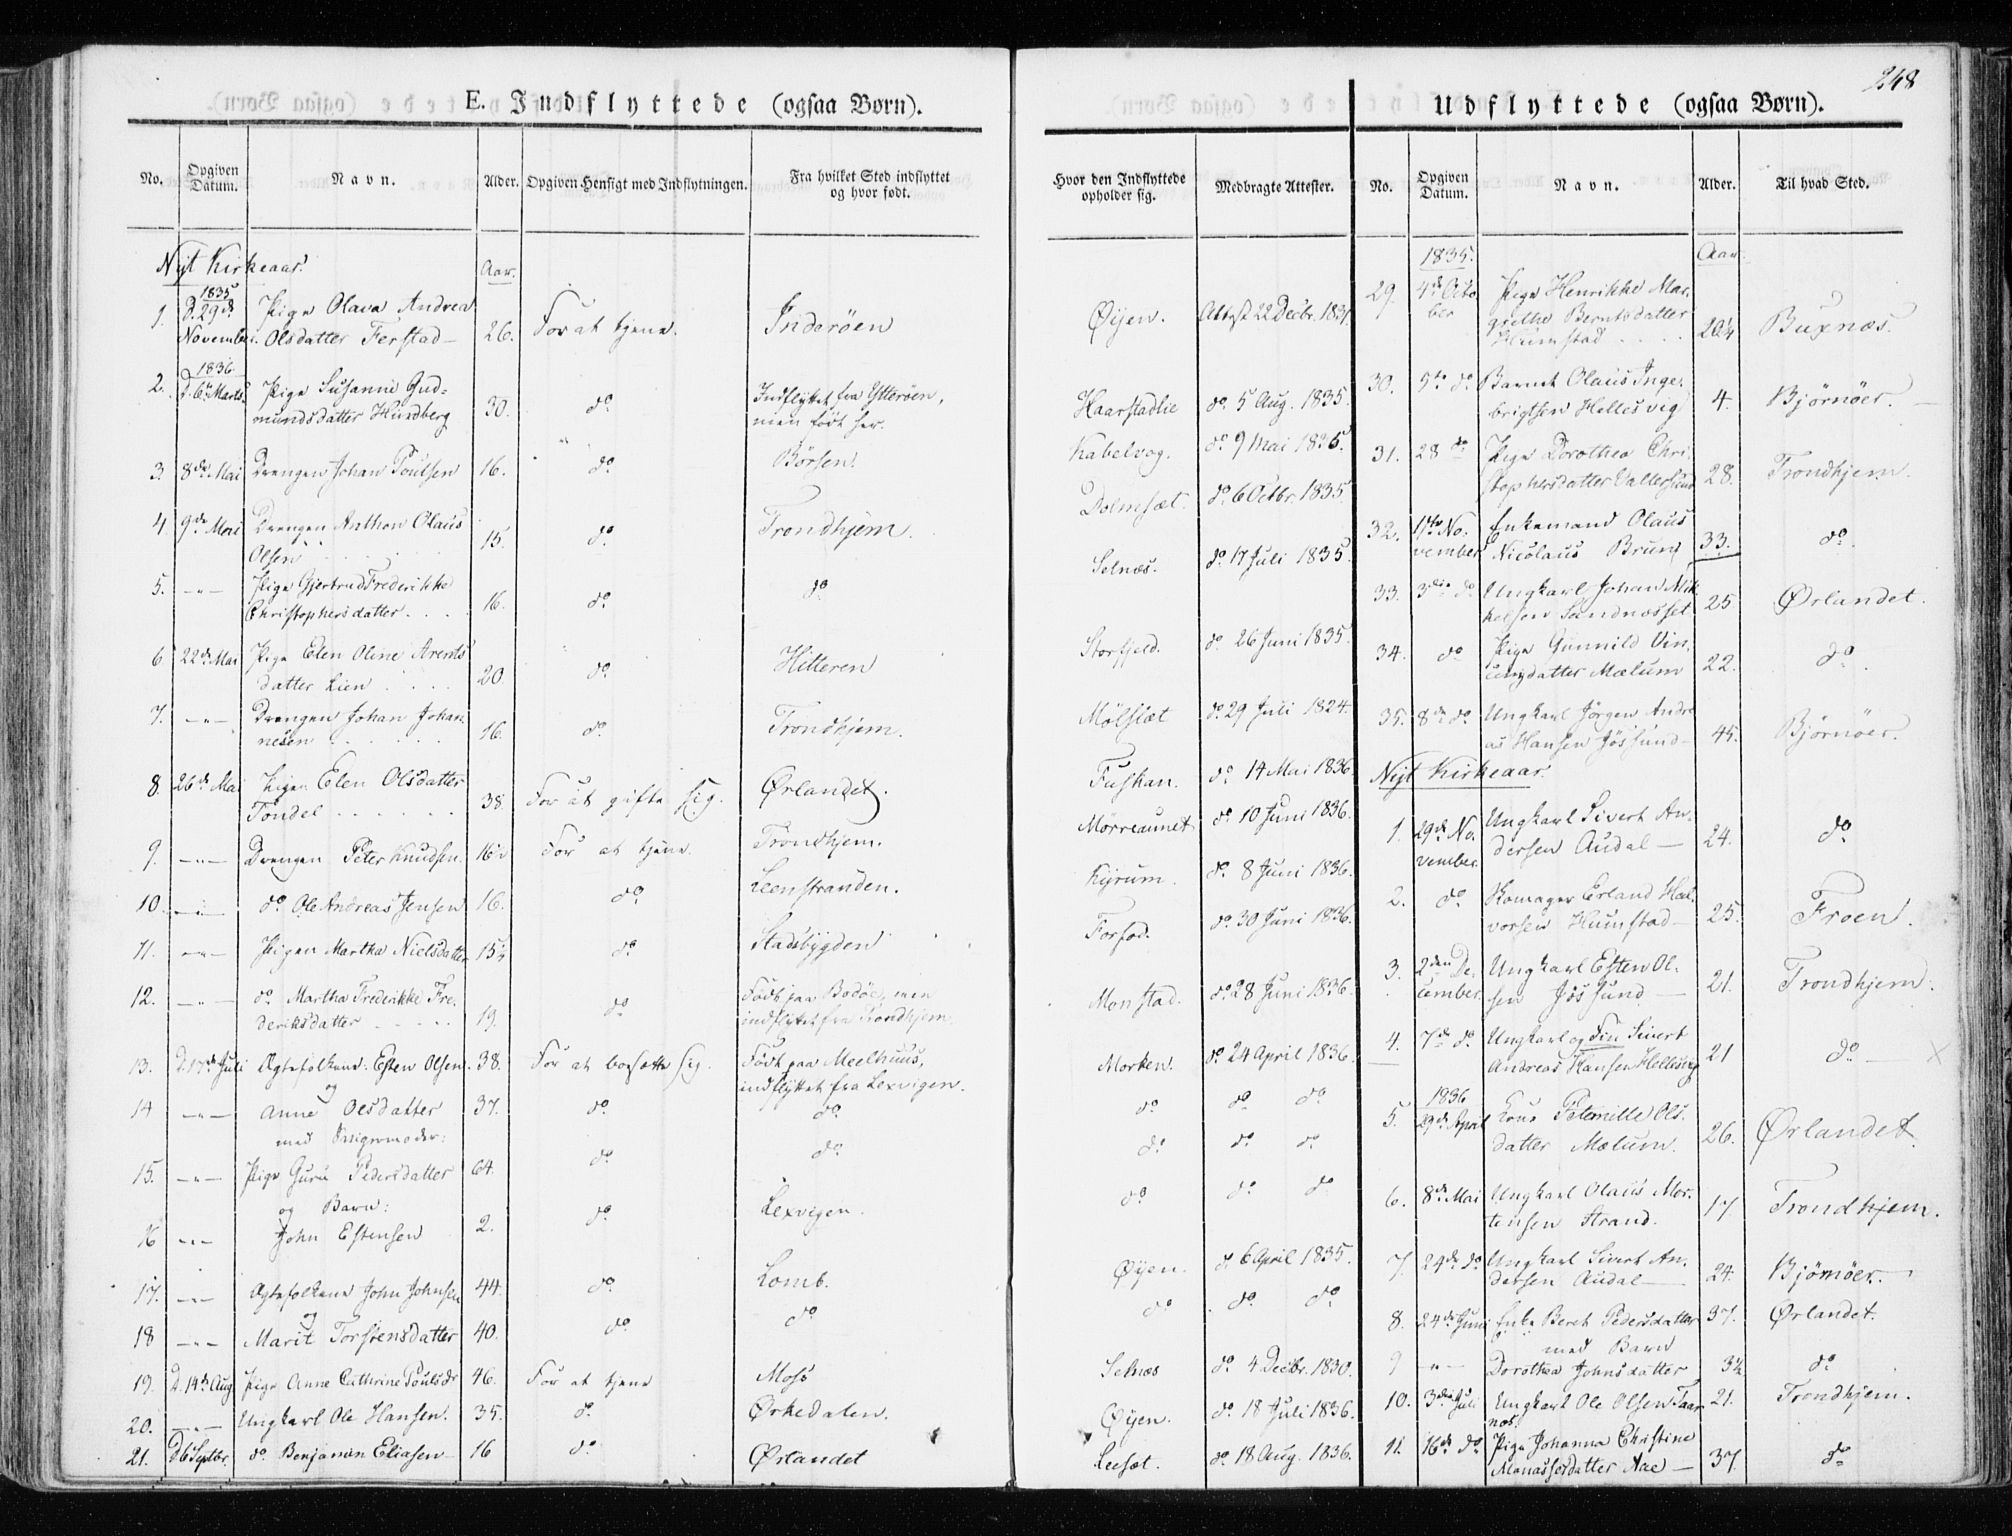 248
E. Indflyttede (ogsaa Børn).
No.
Opgiven Datum.
Navn.
Alder.
Opgiven Hensigt med Indflytningen.
Fra hvilket Sted indflyttet og hvor født.
Nyt Kirkeaar.
Aar.
1. 1835 D. 29de November. Pige Olava Andrea Olsdatter Ferstad 26. For at tjene. Inderöen
2. 1836 D. 6te Marts. Pige Susanne Gudmundsdatter Hundberg 30. do Indflyttet fra Ytteröen, men födt her.
3. 8de Mai Drengen Johan Poulsen 16. do Börsen.
4 9de Mai Drengen Anthon Olaus Olsen 15. do Trondhjem.
5. -"- Pige Gjertrud Frederikke Christophersdatter 16. do do
6. 22de Mai Pige Elen Oline Arentsdatter Lien 20. do Hitteren
7. -"- Drengen Johan Johannesen 16. do Trondhjem.
8. 26de Mai Pigen Elen Olsdatter Tondel 38. For at gifte sig. Ørlandet.
9. -"- Drengen Peter Knudsen. 16½ For at tjene. Trondhjem.
10. -"- do Ole Andreas Jensen 16. do Leenstranden.
11. -"- Pigen Martha Nielsdatter 15½ do Stadsbygden
12. -"- do Martha Frederikke Frederiksdatter 19. do Födt paa Bodöe, men indflyttet fra Trondhjem
13. D. 17de Juli Ægtefolkene: Esten Olsen 38. For at bosætte sig. Födt paa Meelhuus, indflyttet fra Lexvigen.
og
14 -"- Anne Olsdatter 37. do do
med Svigermoder:
15. -"- Pige Guru Pedersdatter 64. do do
og Barn:
16 -"- John Estensen 2. do Lexvigen.
17. -"- Ægtefolkene John Johnsen 44. do Lomb.
og
18 -"- Marit Torstensdatter 40. do do
19. D. 14de Aug. Pige Anne Cathrine Poulsdr 46. For at tjene Moss
20. -"- Ungkarl Ole Hansen. 35. do Ørkedalen.
21. D 6 Septbr. do Benjamin Eliasen 16 do Ørlandet
Hvor den Indflyttede opholder sig.
Medbragte Attester.
Øyen. Attest 22 Decbr. 1831.
Haarstadlie do 5 Aug. 1835.
Kabelvog. do 9 Mai 1836.
Dolmsæt. do 6 Octbr. 1835
Selnæs. do 17 Juli 1835.
Storfjeld. do 26 Juni 1835.
Mölslæt do 29 Juli 1824.
Fuskan. do 14 Mai 1836
Mörreaunet do 10 Juni 1836.
Kyrum. do 8 Juni 1836.
Forsod. do 30 Juni 1836.
Monstad. do 28 Juni 1836.
Morken. do 24 April 1836.
do do do
do do do
do do do
Øyen. do 6 April 1835.
do do do
Selnæs do 4 Decbr. 1830.
Øyen. do 18 Juli 1836.
Leesæt. do 18 Aug. 1836.
Udflyttede (ogsaa Børn).
No.
Opgiven Datum.
Navn.
Alder.
Til hvad Sted.
1835.
Aar
29. 4de October Pige Henrikke Margrethe Berntsdatter Humstad 20¼ Buxnæs.
30. 5te do Barnet Olaus Ingebrigtsen Hellesvig 4. Björnöer.
31. 28 do Pige Dorothea Christophersdatter Vallersund 28. Trondhjem.
32. 1ste November Enkemand Olaus Nicolaus Brun 33. do.
33. 3die do Ungkarl Johan Mikkelsen Sandnæsset 25 Ørlandet.
34. do Pige Gunnild Vincensdatter Mælum 22. do.
35. 8de do Ungkarl Jörgen Andreas Hansen Jössund 45. Björnöer.
Nyt Kirkeaar.
1. 29de November. Ungkarl Sivert Andersen Audal 24. do
2. do Skomager Erland Halvorsen Humstad 25. Froen.
3. 2den December. Ungkarl Esten Olsen Jössund 21. Trondhjem.
4. 7de do Ungkarl Sivert Andreas Hansen Hellesvig 21 do
1836
5. 29de April Kone Peternille Olsdatter Mælum. 26. Ørlandet.
6. 8de Mai Ungkarl Olaus Mortensen Strand. 17 Trondhjem.
7. 24de do Ungkarl Sivert Andersen Audal 24. Björnöer.
8. 24de Juni Enke Beret Pedersdatter 37. Ørlandet.
med Barn
9 -"- Dorothea Johnsdatter 3½ do
10. 3die Juli Ungkarl Ole Olsen Taarnæs. 21. Trondhjem.
11. 16de do Pige Johanna Christine Manassesdatter Aae 37. do